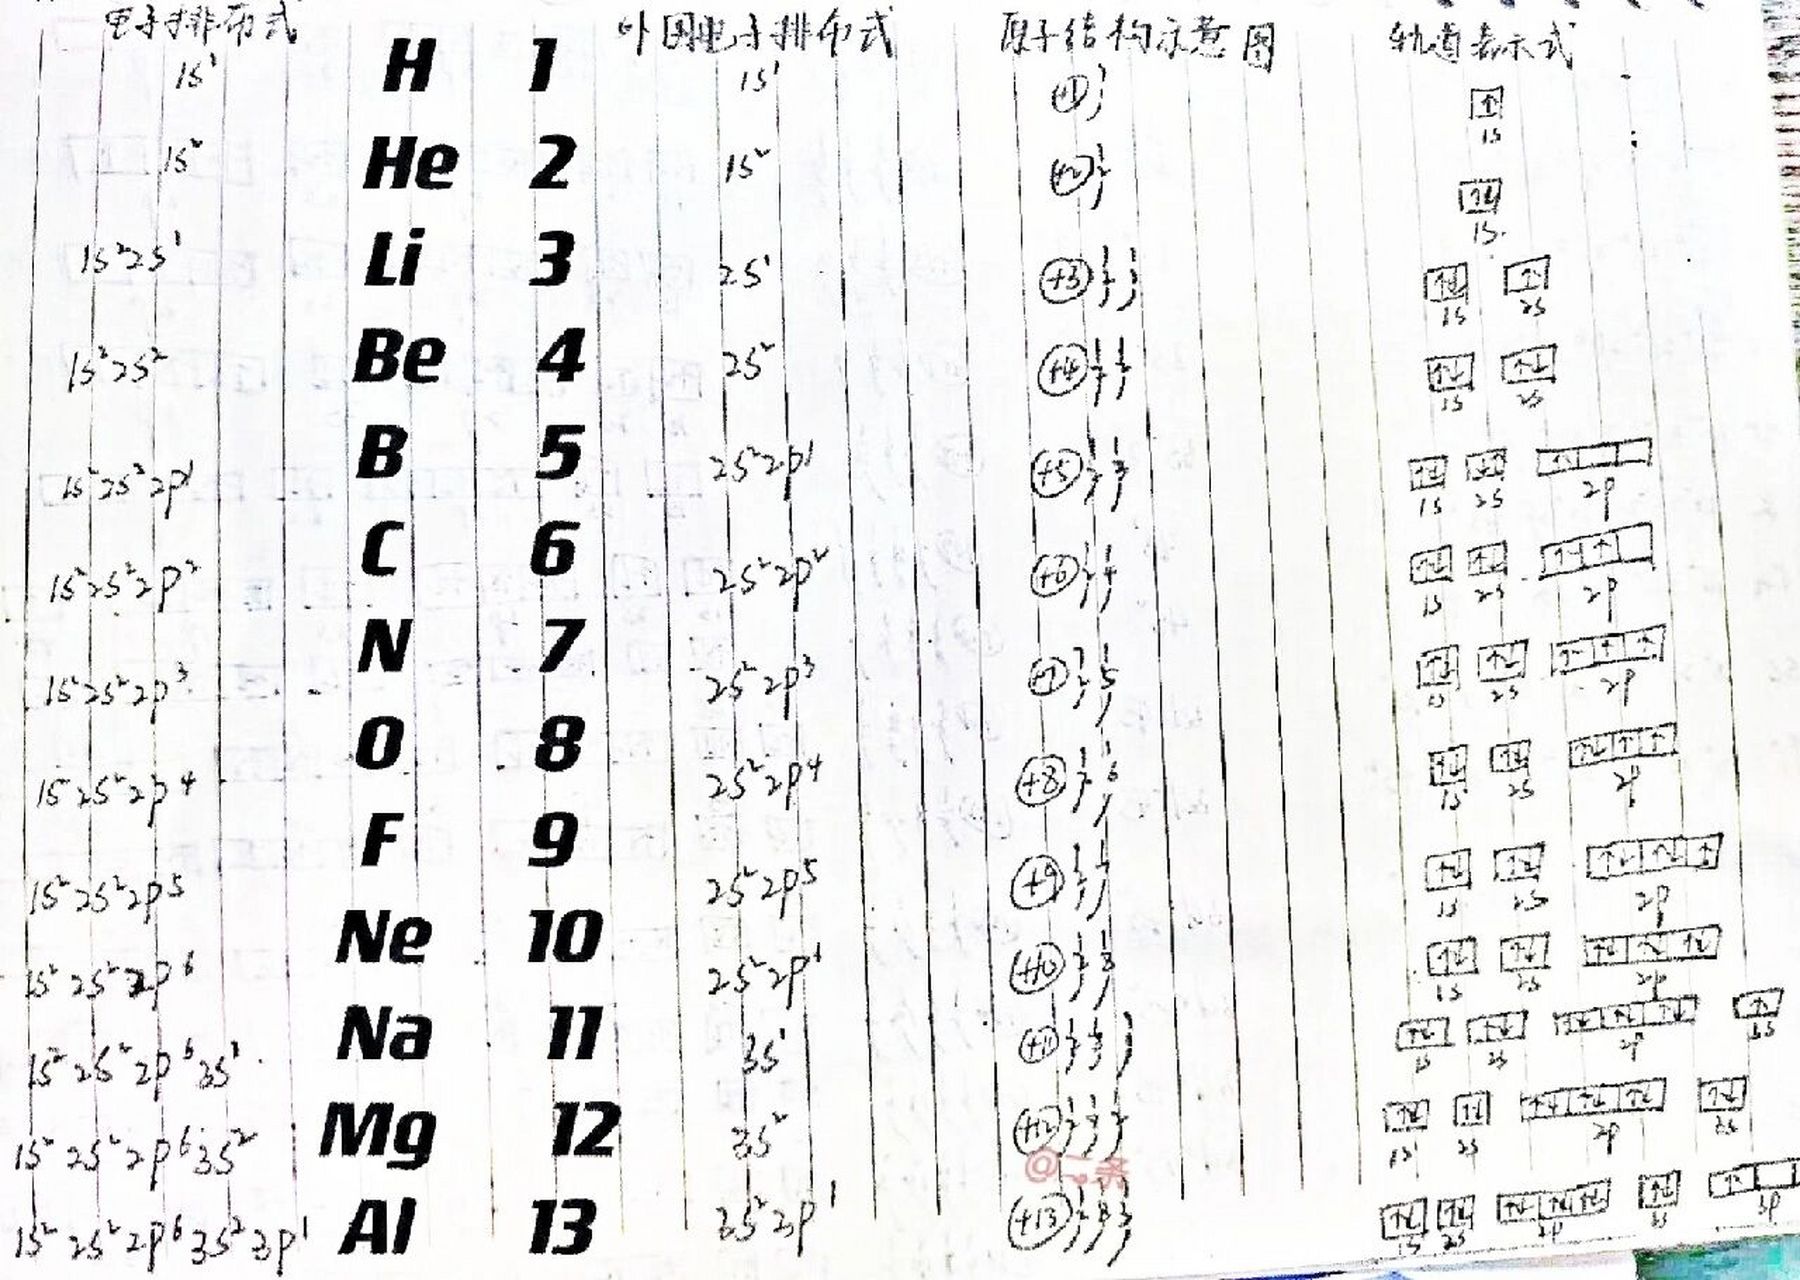 电子排布式 外围电子排布式 原子结构示意图 轨道表示式
1s¹ H 1 1s¹ +1 1 ↑ 1s
1s² He 2 1s² +2 2 ↑↓ 1s
1s²2s¹ Li 3 2s¹ +3 2 1 ↑↓ ↑ 1s 2s
1s²2s² Be 4 2s² +4 2 2 ↑↓ ↑↓ 1s 2s
1s²2s²2p¹ B 5 2s²2p¹ +5 2 3 ↑↓ ↑↓ ↑ 1s 2s 2p
1s²2s²2p² C 6 2s²2p² +6 2 4 ↑↓ ↑↓ ↑ ↑ 1s 2s 2p
1s²2s²2p³ N 7 2s²2p³ +7 2 5 ↑↓ ↑↓ ↑ ↑ ↑ 1s 2s 2p
1s²2s²2p⁴ O 8 2s²2p⁴ +8 2 6 ↑↓ ↑↓ ↑↓ ↑ ↑ 1s 2s 2p
1s²2s²2p⁵ F 9 2s²2p⁵ +9 2 7 ↑↓ ↑↓ ↑↓ ↑↓ ↑ 1s 2s 2p
1s²2s²2p⁶ Ne 10 2s²2p⁶ +10 2 8 ↑↓ ↑↓ ↑↓ ↑↓ ↑↓ 1s 2s 2p
1s²2s²2p⁶3s¹ Na 11 3s¹ +11 2 8 1 ↑↓ ↑↓ ↑↓ ↑↓ ↑↓ ↑ 1s 2s 2p 3s
1s²2s²2p⁶3s² Mg 12 3s² +12 2 8 2 ↑↓ ↑↓ ↑↓ ↑↓ ↑↓ ↑↓ 1s 2s 2p 3s
1s²2s²2p⁶3s²3p¹ Al 13 3s²3p¹ +13 2 8 3 ↑↓ ↑↓ ↑↓ ↑↓ ↑↓ ↑↓ ↑ 1s 2s 2p 3s 3p